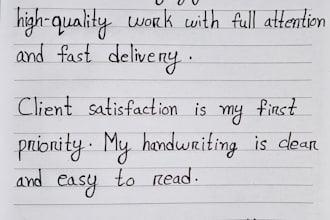 high-quality work with full attention
and fast delivery.
Client satisfaction is my first
priority. My handwriting is clear
and easy to read.